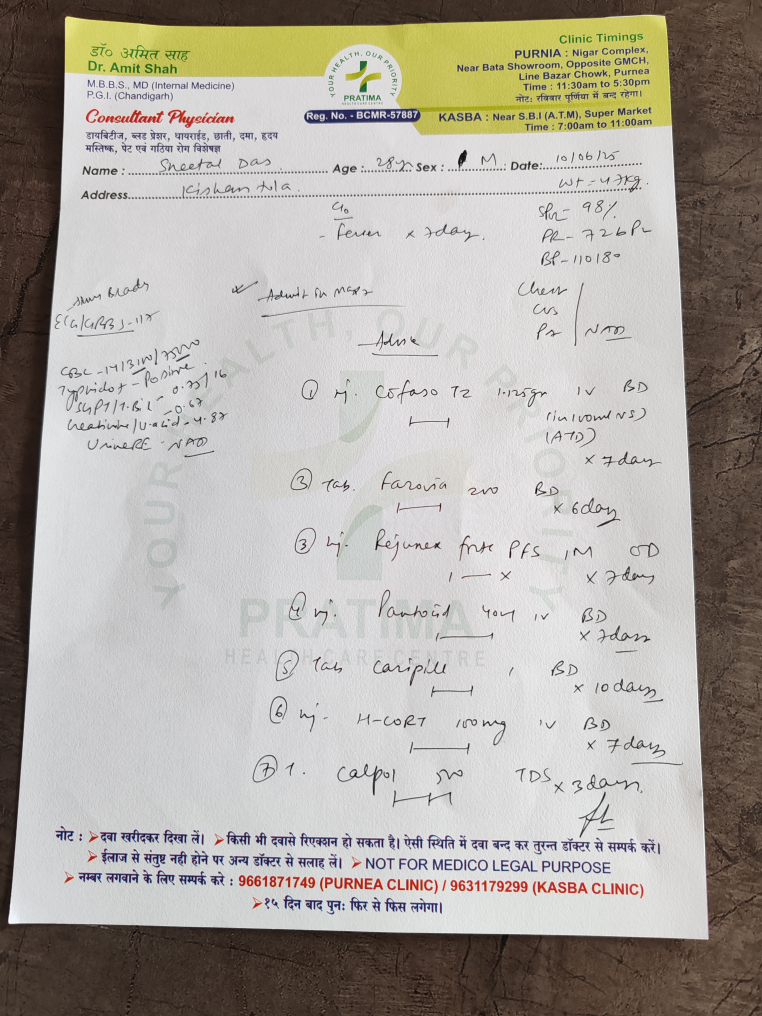 डॉ० अमित साह
Dr. Amit Shah
M.B.B.S., MD (Internal Medicine)
P.G.I. (Chandigarh)
Consultant Physician
डायबिटीज, ब्लड प्रेशर, थायराईड, छाती, दमा, हृदय
मस्तिष्क, पेट एवं गठिया रोग विशेषज्ञ
YOUR HEALTH, OUR PRIORITY
PRATIMA
HEALTH CARE CENTRE
Reg. No. - BCMR-57887
Clinic Timings
PURNIA : Nigar Complex,
Near Bata Showroom, Opposite GMCH,
Line Bazar Chowk, Purnea
Time : 11:30am to 5:30pm
नोट: रविवार पूर्णिया में बन्द रहेगा।
KASBA : Near S.B.I (A.T.M), Super Market
Time : 7:00am to 11:00am
Name : Sheetal Das Age : 28yr Sex : M Date: 10/06/25
Address Wt - 47kg
C/o
- Fever x 7day.
SPO2 - 98%
PR - 72bPM
BP - 110/80
Admit in
Chest
CVS
P/A NAD
CBC - 14/3100/
Typhidot - Positive
SGPT/T.Bil - 0.75/16
Creatinine/U.acid - 4.87
- 0.67
Urine RE - NAD
Advise
① Inj. Cofaso TZ 1.125gm IV BD
(in 100ml NS)
(ATD)
x 7day
③ Tab. Farovia 200 BD
x 6day
③ Inj. Rejunex forte PFS IM OD
1 — x x 7days
4 Inj. Pantocid 40mg IV BD
x 7days
⑤ Tab Caripill 1 BD
x 10days
⑥ Inj. H-CORT 100mg IV BD
x 7days
⑦ T. Calpol 500 TDS x 3days.
YOUR HEALTH, OUR PRIORITY
PRATIMA
HEALTH CARE CENTRE
नोट : ➢ दवा खरीदकर दिखा लें। ➢ किसी भी दवासे रिएक्शन हो सकता है। ऐसी स्थिति में दवा बन्द कर तुरन्त डॉक्टर से सम्पर्क करें।
➢ ईलाज से संतुष्ट नही होने पर अन्य डॉक्टर से सलाह लें। ➢ NOT FOR MEDICO LEGAL PURPOSE
➢ नम्बर लगवाने के लिए सम्पर्क करे : 9661871749 (PURNEA CLINIC) / 9631179299 (KASBA CLINIC)
➢ १५ दिन बाद पुनः फिर से फिस लगेगा।